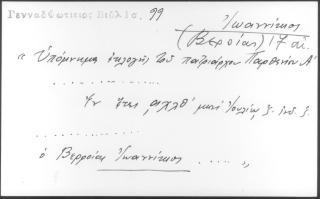 Γενναδίωτικος Βιβλιο. 99
Ἰωαννίκιος
(Βεροίας) 17 αἰ.
« Ὑπόμνημα ἐκλογῆς τοῦ πατριάρχου Παρθενίου Α'
. . . . . . . . . . .
Ἐν ἔτει, αχλθ' μηνὶ Ἰουλίῳ ζ. ἰνδ. ζ
. . . . . . . . . . .
ὁ Βερροίας Ἰωαννίκιος . . . . . »